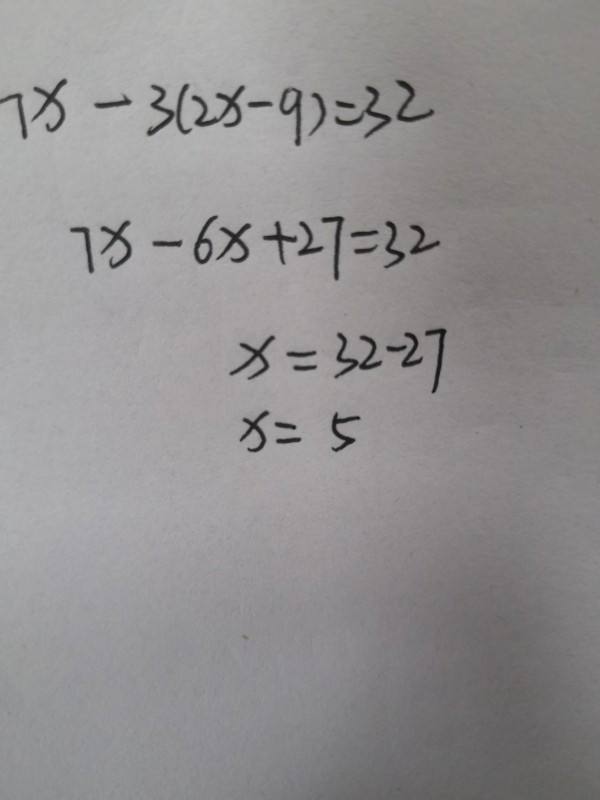 7x - 3(2x-9)=32
7x - 6x +27=32
x = 32-27
x = 5